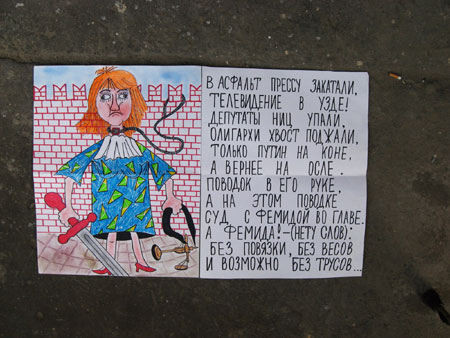 В АСФАЛЬТ ПРЕССУ ЗАКАТАЛИ,
ТЕЛЕВИДЕНИЕ В УЗДЕ!
ДЕПУТАТЫ НИЦ УПАЛИ,
ОЛИГАРХИ ХВОСТ ПОДЖАЛИ,
ТОЛЬКО ПУТИН НА КОНЕ,
А ВЕРНЕЕ НА ОСЛЕ.
ПОВОДОК В ЕГО РУКЕ,
А НА ЭТОМ ПОВОДКЕ
СУД С ФЕМИДОЙ ВО ГЛАВЕ.
А ФЕМИДА!-(НЕТУ СЛОВ):
БЕЗ ПОВЯЗКИ, БЕЗ ВЕСОВ
И ВОЗМОЖНО БЕЗ ТРУСОВ...